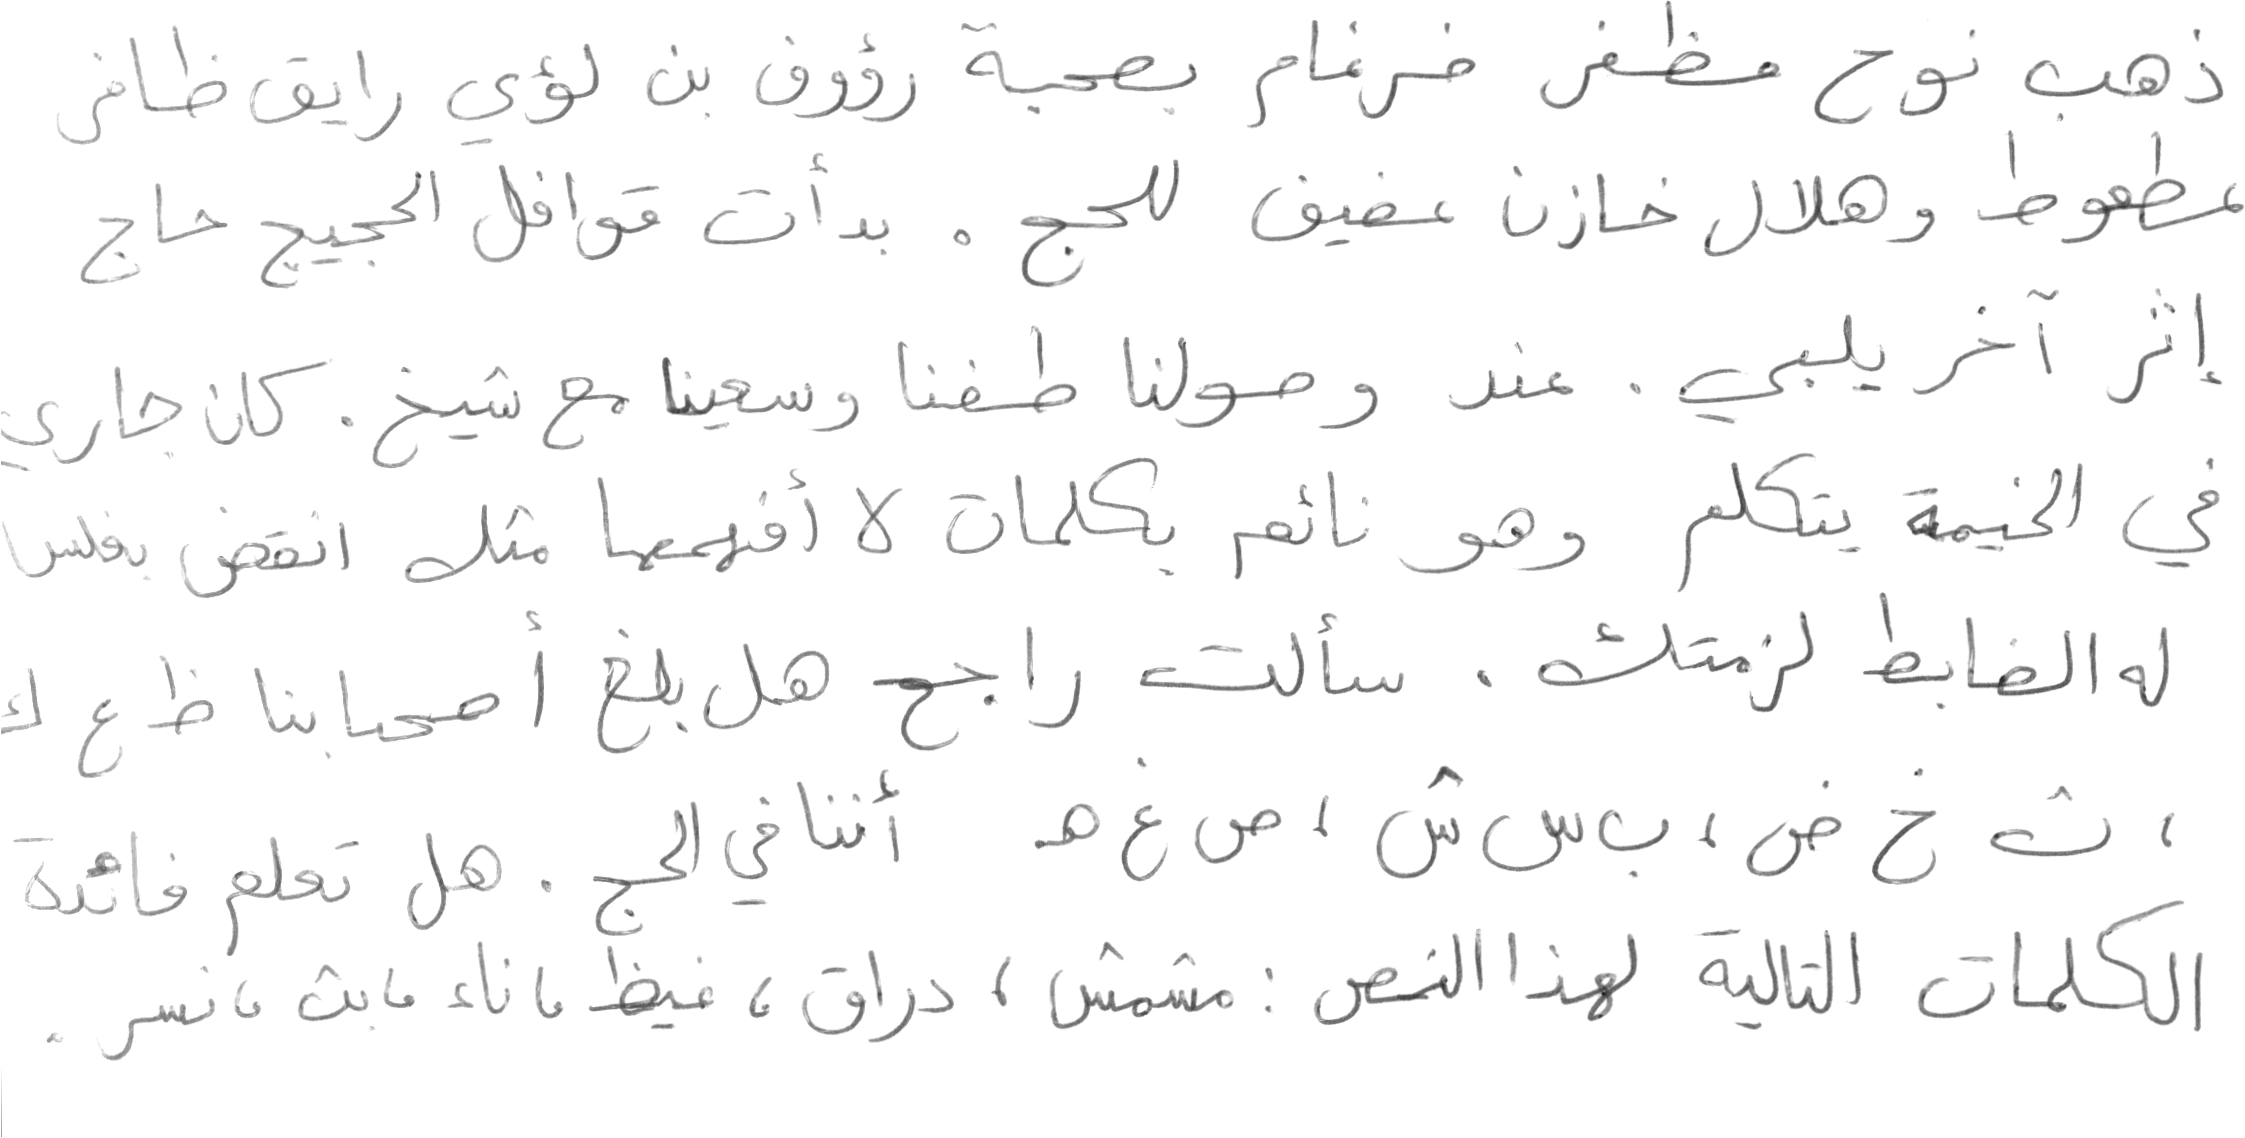 ذهب نوح مظفر ضرغام بصحبة رؤوف بن لؤي رايق ظافر
عطعوط وهلال خازن عضيف للحج . بدأت قوافل الحجيج حاج
إثر آخر يلبي . عند وصولنا طفنا وسعينا مع شيخ . كان جاري
في الخيمة يتكلم وهو نائم بكلمات لا أفهمها مثل انقض بفلس
له الضابط لزمتك . سألت راجح هل بلغ أصحابنا ظ ع ك
، ث خ ض ، ب س ش ، ص غ هـ أننا في الحج . هل تعلم فائدة
الكلمات التالية لهذا النص : مشمش ، دراق ، غيظ ، ناء ، بث ، نسر .